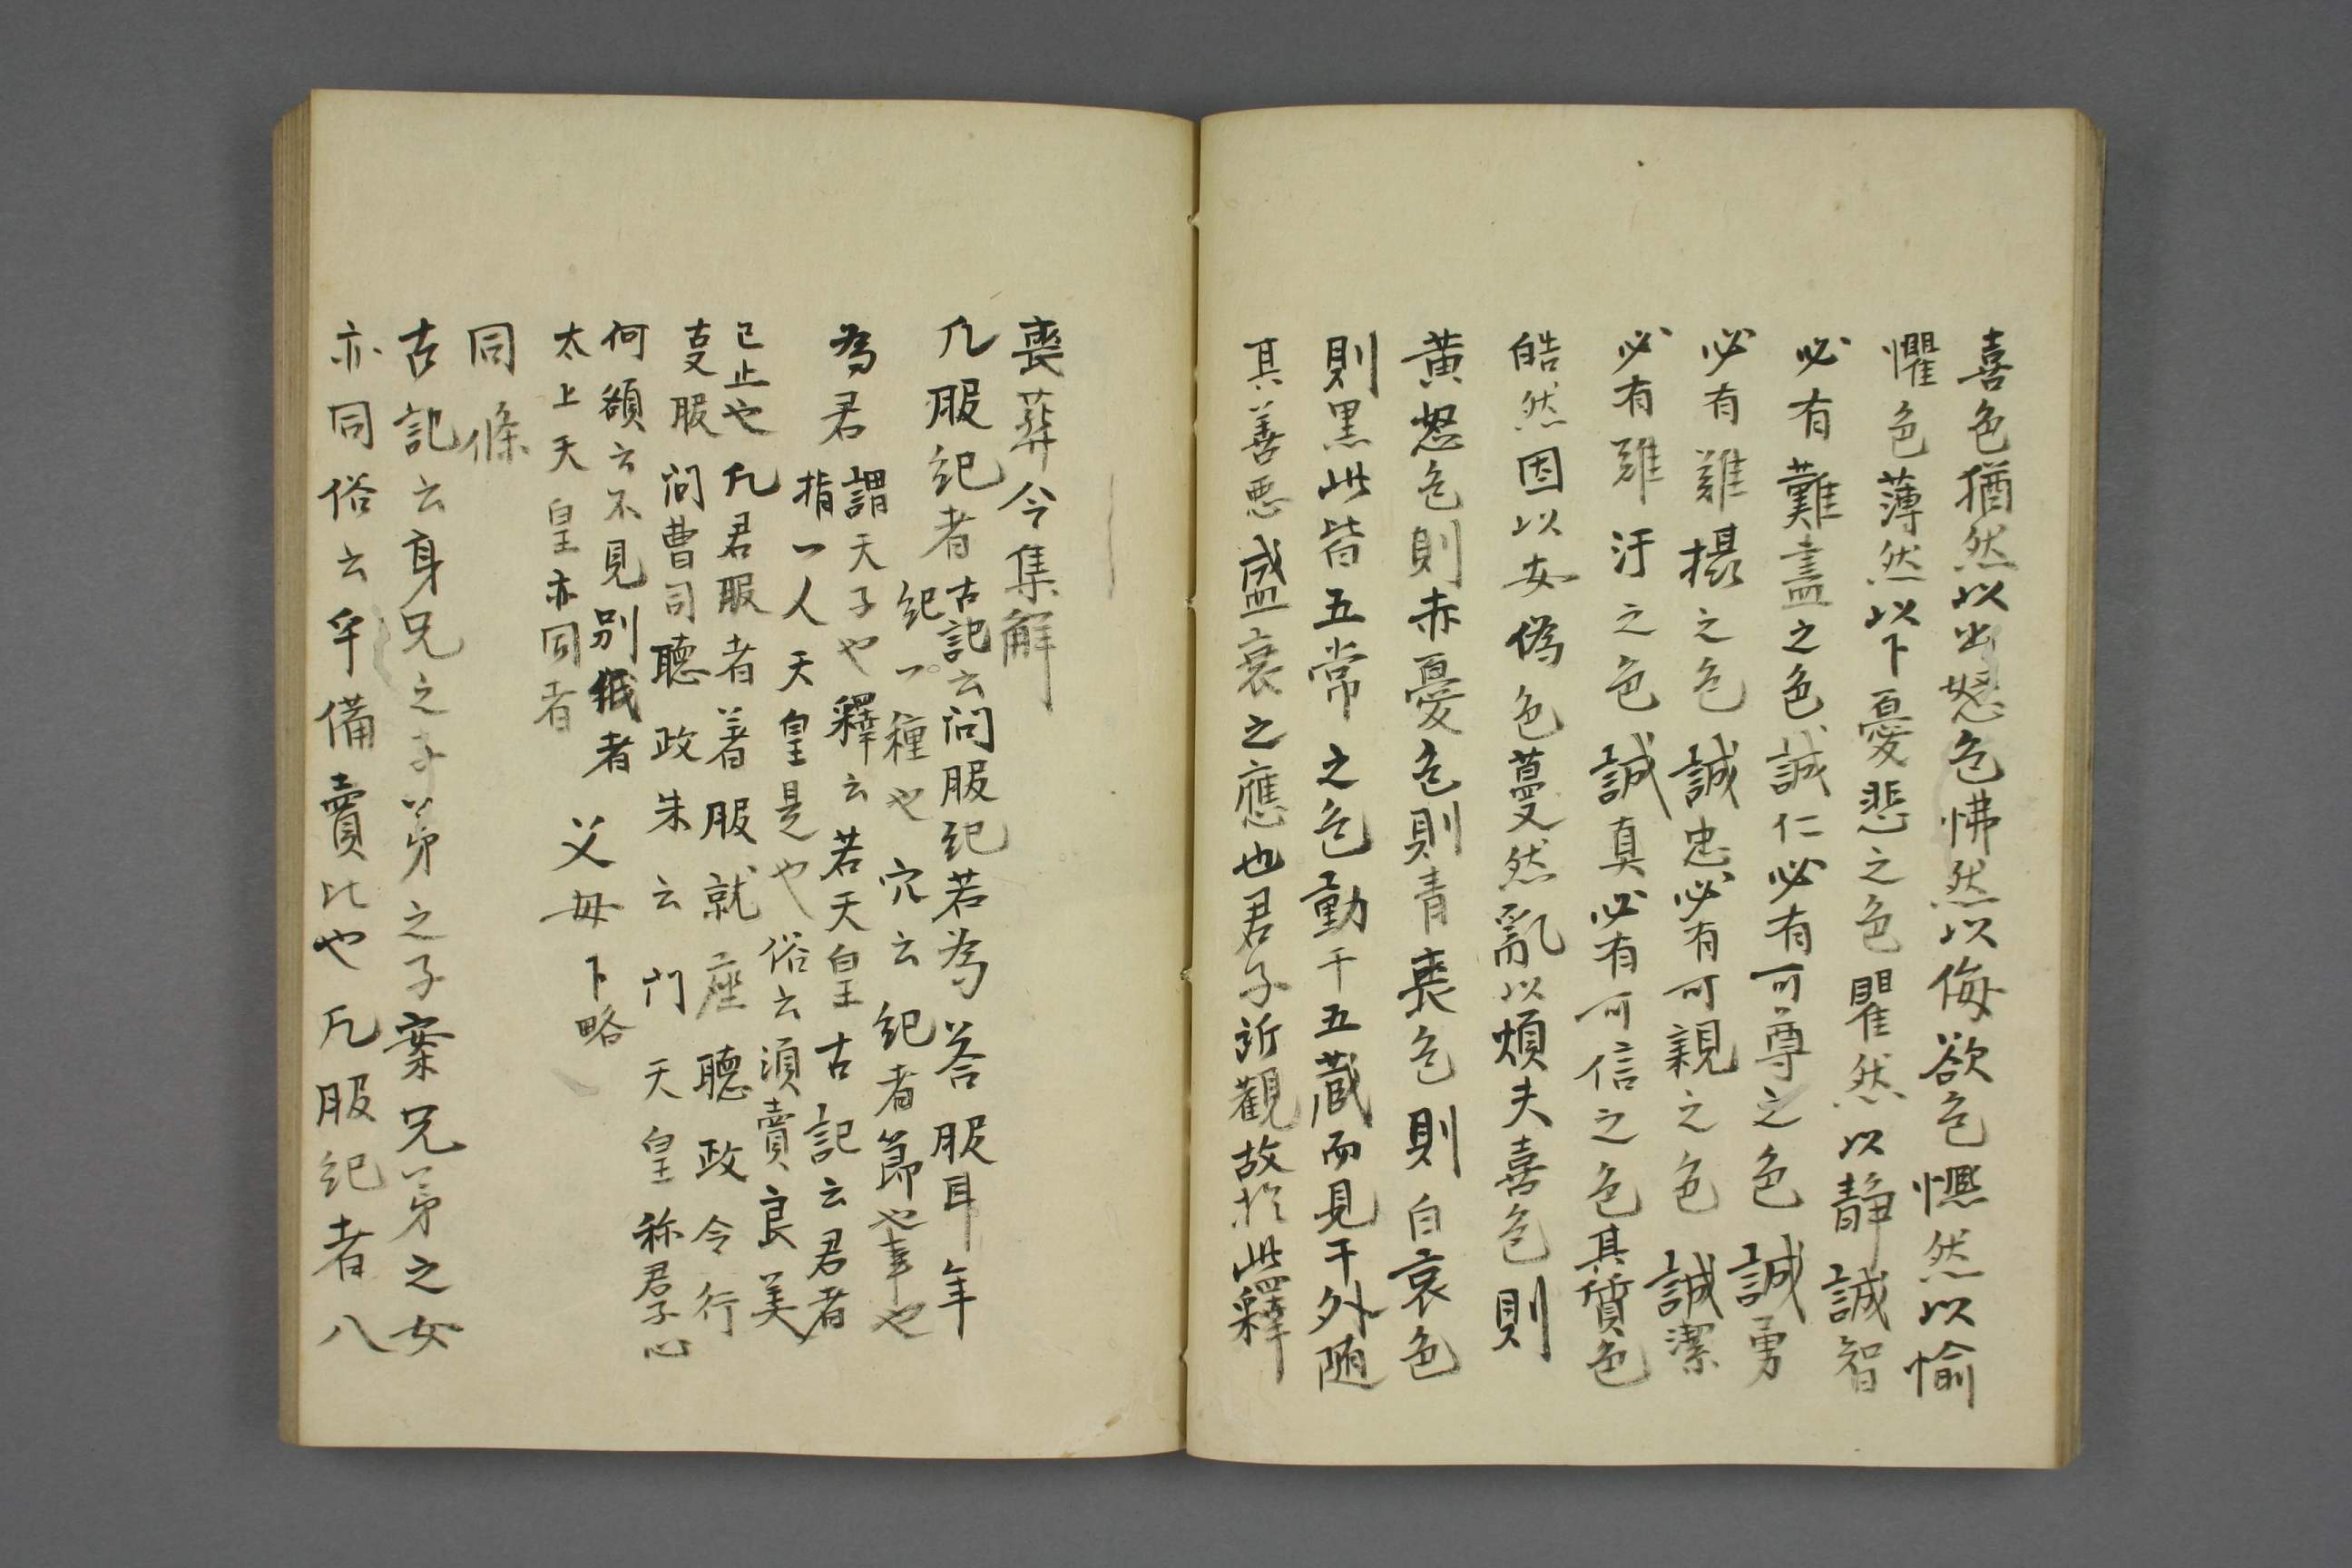 喜色猶然以出怒色怫然以侮欲色㒄然以愉
懼色薄然以下憂悲之色瞿然以静誠智
必有難盡之色誠仁必有可尊之色誠勇
必有難攝之色誠忠必有可親之色誠潔
必有難汙之色誠真必有可信之色其質色
皓然因以安偽色蔓然亂以煩夫喜色則
黄怒色則赤憂色則青喪色則白哀色
則黒此皆五常之色動干五蔵而見干外随
其善悪盛衰之應也君子所觀故於此釋
喪葬令集解
凡服紀者古記云问服紀若為荅服耳年
紀一種也穴云紀者節也事也
為君謂天子也釋云若天皇古記云君者
指一人天皇是也俗云須賣良美
已止也凡君服者著服就座聴政令行
㕝服问曹司聴政朱云门天皇称君子心
何額云不見別紙者父母下略
太上天皇亦同者
同條
古記云身兄之子弟之子案兄弟之女
亦同俗云乎備賣比也凡服紀者八